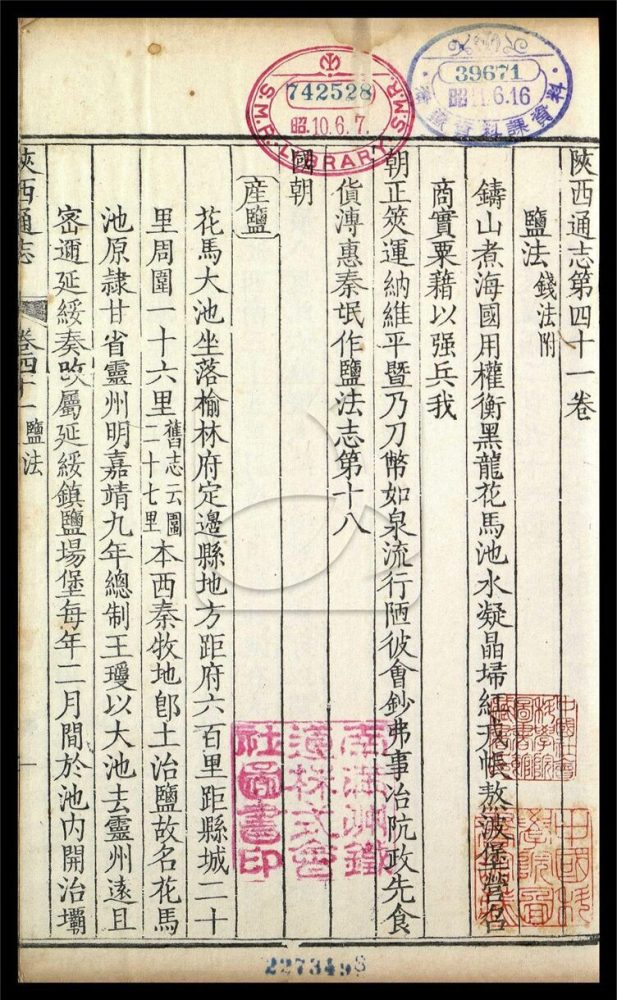 陝西通志第四十一卷
鹽法 錢法附
鑄山煮海國用權衡黑龍花馬池水凝晶埽紅戎帳熬波堡營召
商實粟藉以强兵我
朝正筴運納維平暨乃刀幣如泉流行陋彼會鈔弗事治阬政先食
貨溥惠秦氓作鹽法志第十八
國朝
産鹽
花馬大池坐落榆林府定邊縣地方距府六百里距縣城二十
里周圍一十六里 舊志云圍二十七里 本西秦牧地卽土治鹽故名花馬
池原隷甘省靈州明嘉靖九年總制王瓊以大池去靈州遠且
密邇延綏奏改屬延綏鎮鹽場堡每年二月間於池内開治壩
陝西通志 卷四十一 鹽法 一
S.M.R. LIBRARY S.M.R.
742528
昭.10.6.7.
39671
昭11.6.16
資料課資料
南滿洲鐵
道株式會
社圖書印
中國社會
科學院
圖書館
中國科
學院圖
2273498